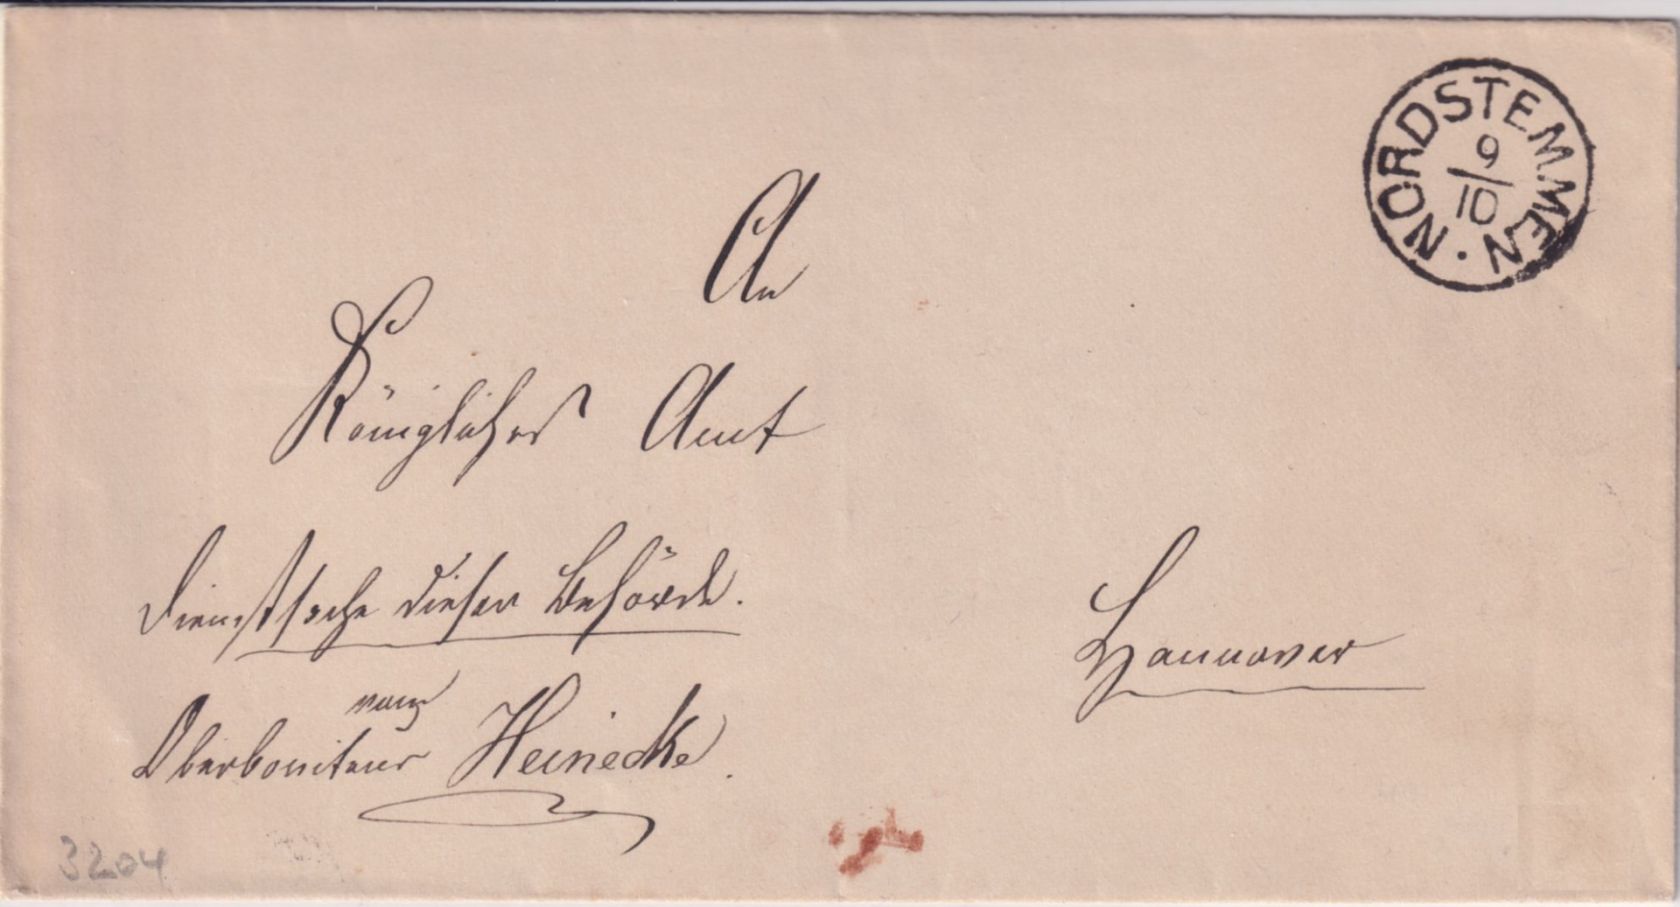 NORDSTEMMEN
9/10
An
Königliches Amt
Dienstsache dieser Behörde.
Hannover
Oberboniteur Heinecke.
3204